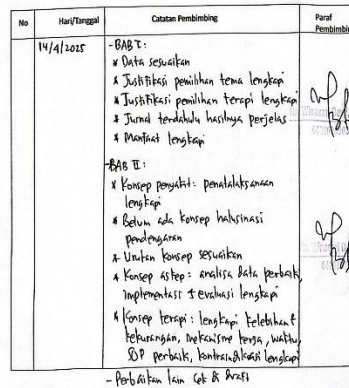 No Hari/Tanggal Catatan Pembimbing Paraf Pembimbing
14/4/2025 - BAB I:
* Data sesuaikan
* Justifikasi pemilihan tema lengkapi
* Justifikasi pemilihan terapi lengkapi
* Jurnal terdahulu hasilnya perjelas
* Manfaat lengkapi
- BAB II:
* Konsep penyakit: penatalaksanaan
lengkapi
* Belum ada konsep halusinasi
pendengaran
* Urutan konsep sesuaikan
* Konsep askep: analisa data perbaiki,
implementasi & evaluasi lengkapi
* Konsep terapi: lengkapi kelebihan &
kekurangan, mekanisme kerja, waktu,
SOP perbaiki, kontraindikasi lengkapi
- Perbaikan lain cek di